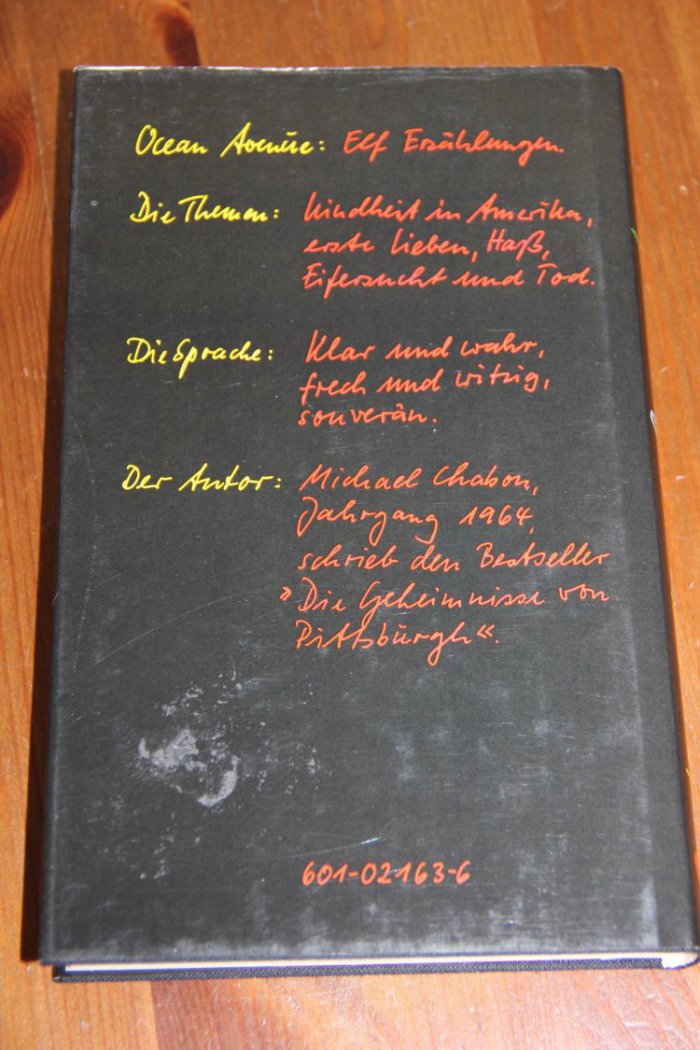 Ocean Avenue: Elf Erzählungen.
Die Themen: Kindheit in Amerika,
erste Lieben, Haß,
Eifersucht und Tod.
Die Sprache: Klar und wahr,
frech und witzig,
souverän.
Der Autor: Michael Chabon,
Jahrgang 1964,
schrieb den Bestseller
»Die Geheimnisse von
Pittsburgh«.
601-02163-6